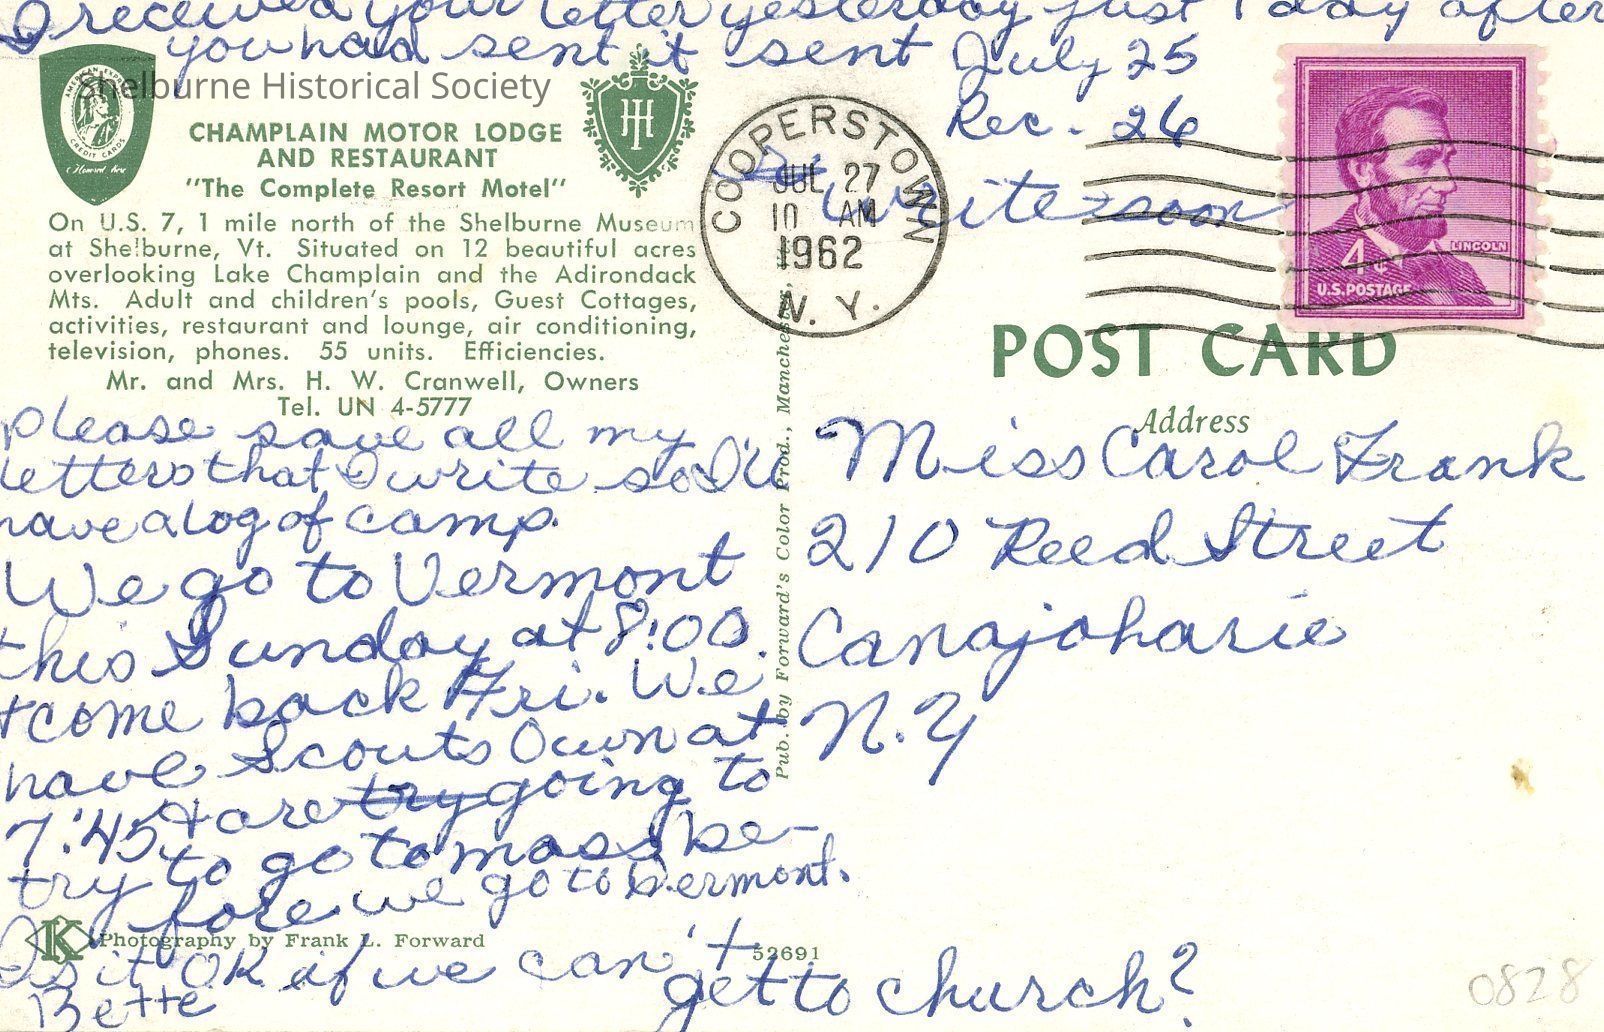 I received your letter yesterday just 1 day after
you had sent it sent July 25
Rec. 26
write soon
Shelburne Historical Society
AMERICAN EXPRESS
CREDIT CARDS
Honored here
CHAMPLAIN MOTOR LODGE
AND RESTAURANT
"The Complete Resort Motel"
On U.S. 7, 1 mile north of the Shelburne Museum
at Shelburne, Vt. Situated on 12 beautiful acres
overlooking Lake Champlain and the Adirondack
Mts. Adult and children's pools, Guest Cottages,
activities, restaurant and lounge, air conditioning,
television, phones. 55 units. Efficiencies.
Mr. and Mrs. H. W. Cranwell, Owners
Tel. UN 4-5777
COOPERSTOWN
JUL 27
10 AM
1962
N. Y.
4¢
LINCOLN
U.S. POSTAGE
POST CARD
Address
please save all my
letters that I write so I'll
have a log of camp.
We go to Vermont
this Sunday at 8:00.
+ come back Fri. We
have Scouts Own at
7:45 + are try going to
try to go to mass be-
fore we go to Vermont.
Is it OK if we can't
get to church?
Bette
Miss Carol Frank
210 Reed Street
Canajoharie
N.Y
Pub. by Forward's Color Prod., Manchester,
K
Photography by Frank L. Forward
52691
0828